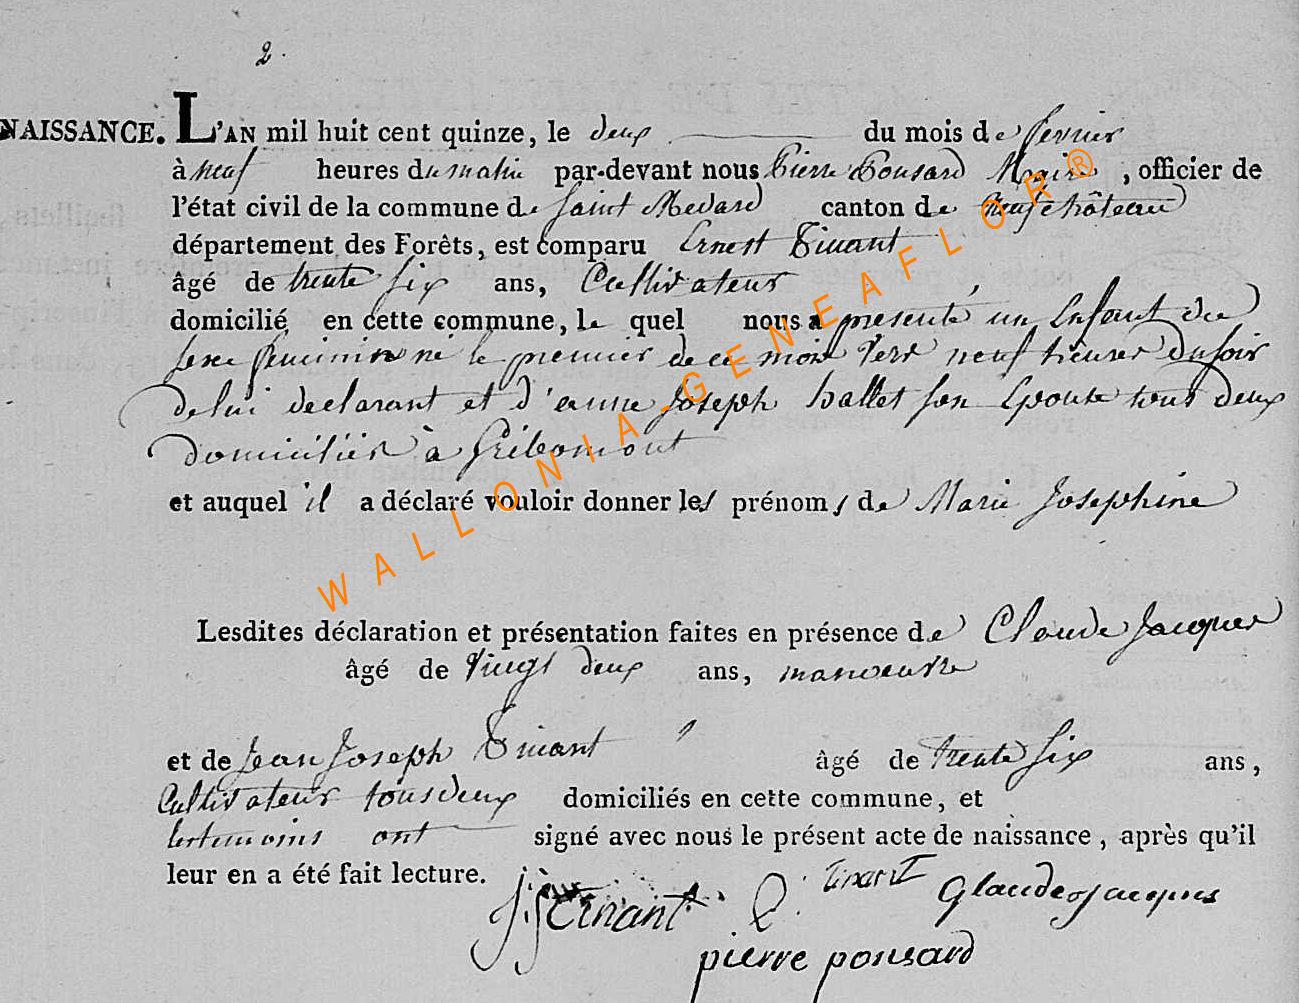 2.
NAISSANCE. L'AN mil huit cent quinze, le deux du mois de fevrier
à neuf heures du matin par-devant nous Pierre Ponsard Maire, officier de
l'état civil de la commune de Saint Medard canton de neufchâteau
département des Forêts, est comparu Ernest Tinant
âgé de trente six ans, Cultivateur
domicilié en cette commune, le quel nous a presenté un Enfant du
sexe feminin né le premier de ce mois vers neuf heures du soir
de lui declarant et d'anne Joseph hallet son Epouse tous deux
domiciliés à Gribomont
et auquel il a déclaré vouloir donner les prénoms de Marie Josephine
Lesdites déclaration et présentation faites en présence de Claude Jacques
âgé de vingt deux ans, manoeuvre
et de Jean Joseph Tinant âgé de trente six ans,
Cultivateur tous deux domiciliés en cette commune, et
les temoins ont signé avec nous le présent acte de naissance, après qu'il
leur en a été fait lecture.
J:J Tinant E: tinant Glaude jacques
pierre ponsard
WALLONIA-GENEAFLOR®